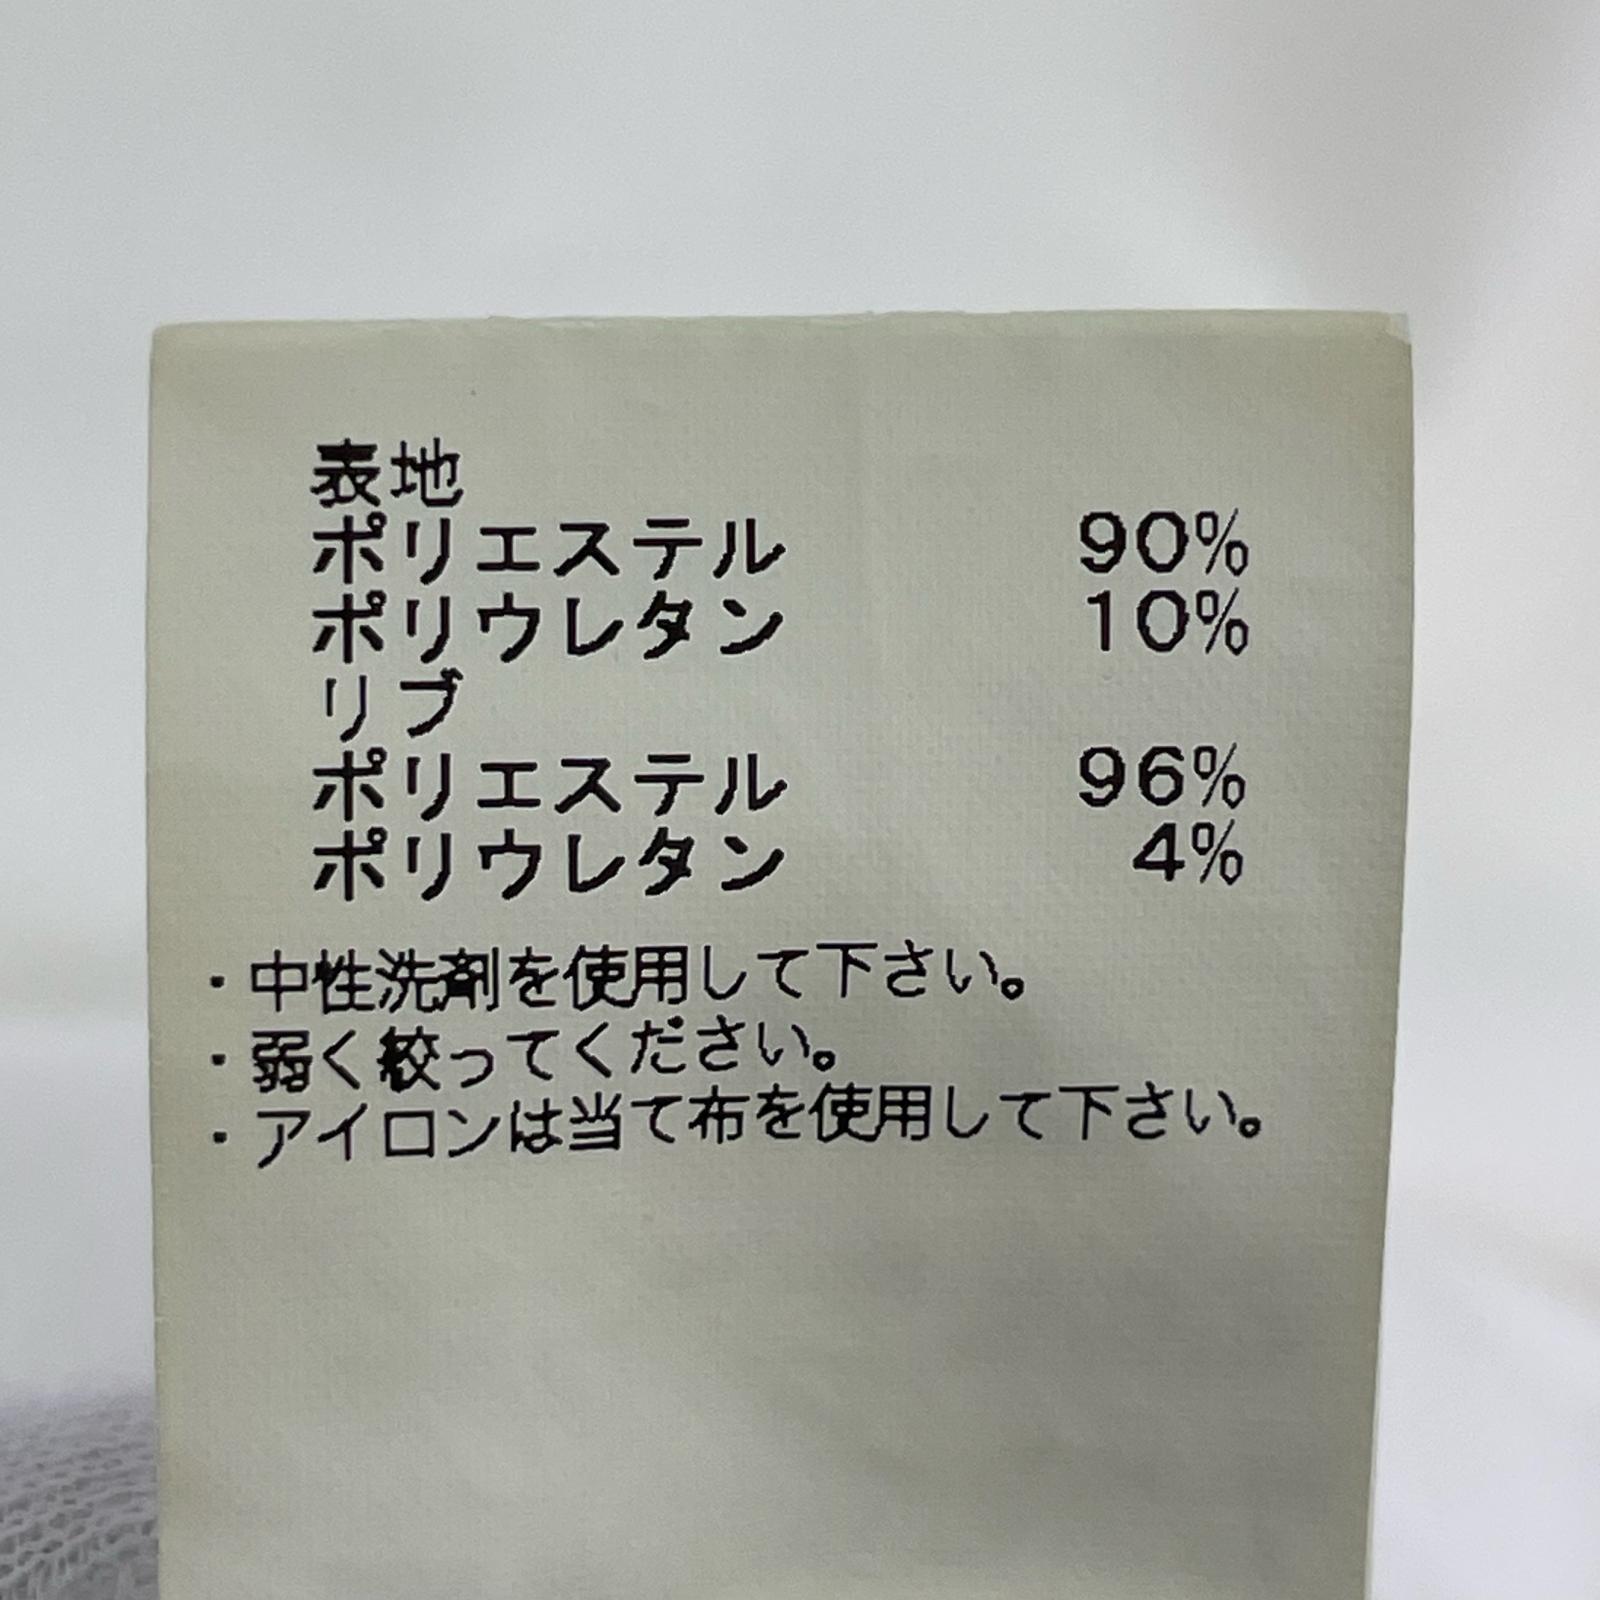 表地
ポリエステル 90%
ポリウレタン 10%
リブ
ポリエステル 96%
ポリウレタン 4%
・中性洗剤を使用して下さい。
・弱く絞ってください。
・アイロンは当て布を使用して下さい。